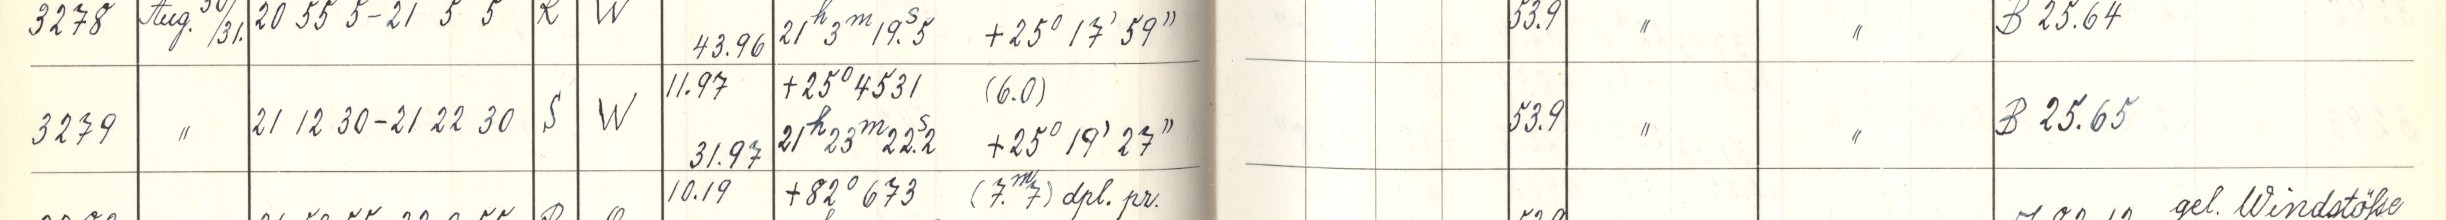 3278 Aug. 30/31. 20 55 5-21 5 5 R W 43.96 21h 3m 19.s5 +25° 17' 59" 53.9 " " B 25.64
11.97 +25° 4531 (6.0)
3279 " 21 12 30-21 22 30 S W 31.97 21h 23m 22.s2 +25° 19' 27" 53.9 " " B 25.65
10.19 +82° 673 (7.m7) dpl. pr.
gel. Windstöße